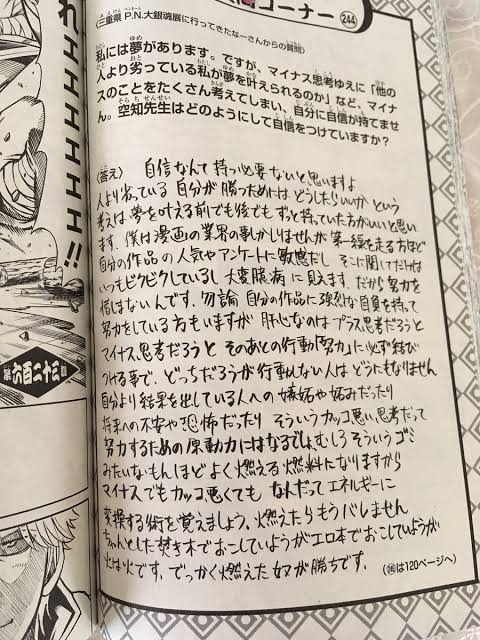 コーナー
244
〈三重県 P.N.大銀魂展に行ってきたなーさんからの質問〉
私には夢があります。ですが、マイナス思考ゆえに「他の
人より劣っている私が夢を叶えられるのか」など、マイナ
スのことをたくさん考えてしまい、自分に自信が持てませ
ん。空知先生はどのようにして自信をつけていますか?
〈答え〉 自信なんて持つ必要ないと思いますよ
人より劣っている自分が勝つためにはどうしたらいいか という
考えは夢を叶える前でも後でもずっと持っていた方がいいと思い
ます。僕は漫画の業界の事しかしりませんが 第一線を走る方ほど
自分の作品の人気やアンケートに敏感だし そこに関してだけは
いつもビクビクしているし 大変臆病に見えます。だから努力を
惜しまないんです。勿論 自分の作品に強烈な自負を持って
努力をしている方もいますが 肝心なのはプラス思考だろうと
マイナス思考だろうと そのあとの行動「努力」に必ず結び
つける事で、どっちだろうが行動しない人はどうにもなりません
自分より結果を出している人への嫉妬や妬みだったり
将来への不安や恐怖だったり そういうカッコ悪い思考だって
努力するための原動力にはなるでしょ むしろそういうゴミ
みたいなもんほどよく燃える燃料になりますから
マイナスでもカッコ悪くても なんだってエネルギーに
変換する術を覚えましょう、燃えたらもうバレません
ちゃんとした焚き木でおこしていようがエロ本でおこしていようが
火は火です。でっかく燃えた奴が勝ちです。
(㊱は120ページへ)
れエエエエエエ!!
第六百二十三